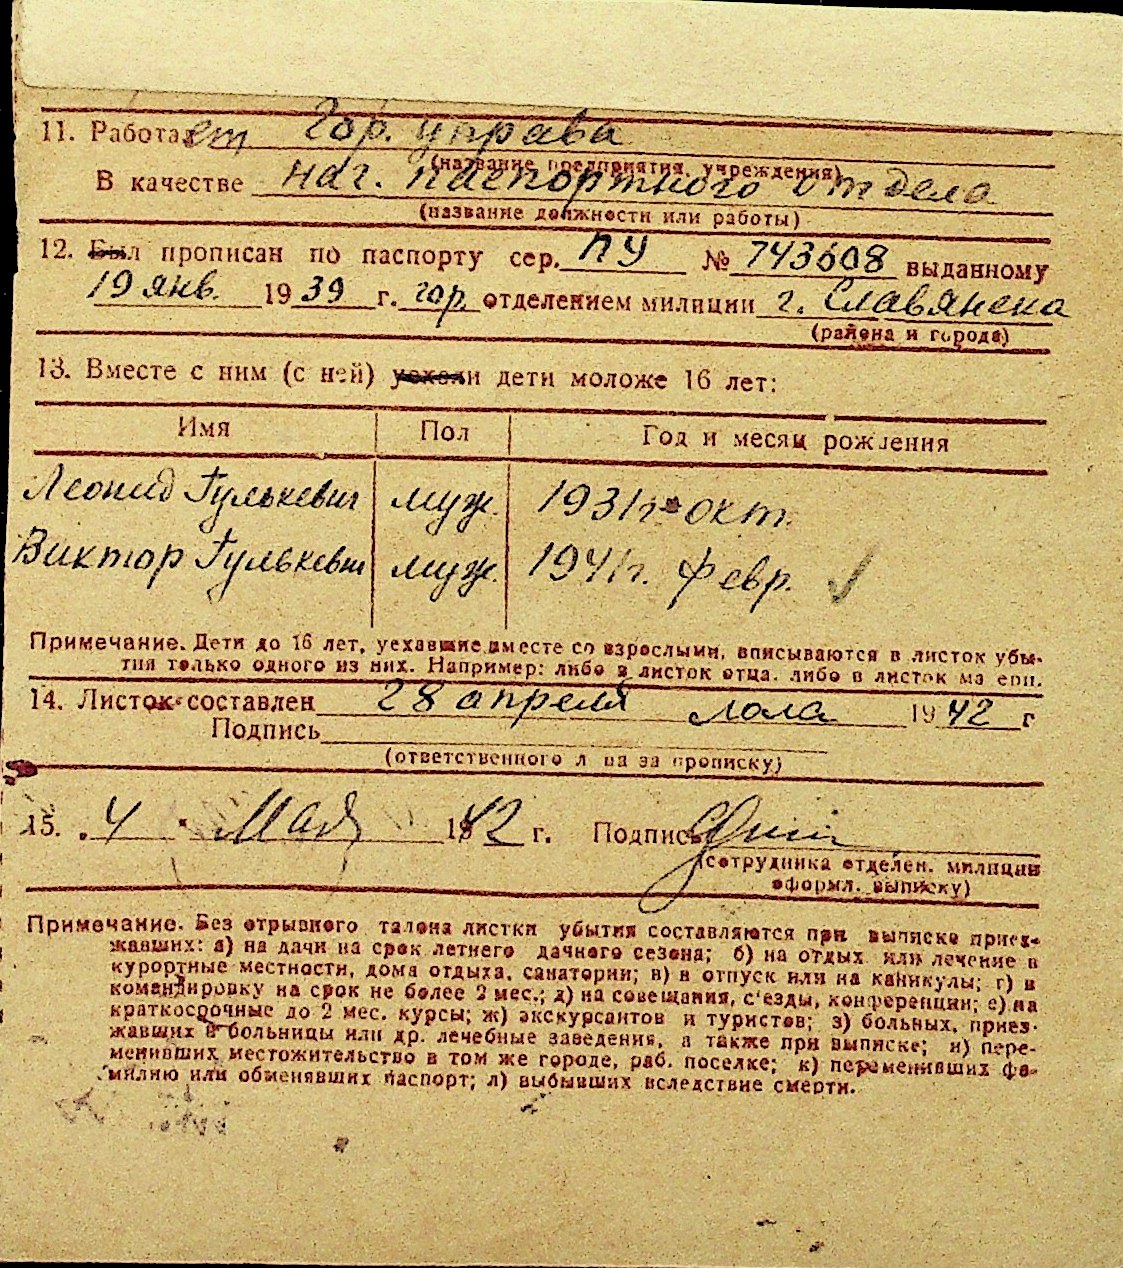 11. Работает Гор. управа
(название предприятия, учреждения)
В качестве нач. паспортного отдела
(название должности или работы)
12. Был прописан по паспорту сер. ПУ № 743608 выданному
19 янв. 1939 г. гор. отделением милиции г. Славянска
(района и города)
13. Вместе с ним (с ней) уехали дети моложе 16 лет:
Имя Пол Год и месяц рождения
Леонид Гулькевич муж. 1931 г. окт.
Виктор Гулькевич муж. 1941 г. февр.
Примечание. Дети до 16 лет, уехавшие вместе со взрослыми, вписываются в листок убы-
тия только одного из них. Например: либо в листок отца, либо в листок матери.
14. Листок составлен 28 апреля 1942 г
Подпись
(ответственного лица за прописку)
15. 4 Мая 1942 г. Подпись
(сотрудника отделен. милиции
оформл. выписку)
Примечание. Без отрывного талона листки убытия составляются при выписке приез-
жавших: а) на дачи на срок летнего дачного сезона; б) на отдых или лечение в
курортные местности, дома отдыха, санатории; в) в отпуск или на каникулы; г) в
командировку на срок не более 2 мес.; д) на совещания, с'езды, конференции; е) на
краткосрочные до 2 мес. курсы; ж) экскурсантов и туристов; з) больных, приез-
жавших в больницы или др. лечебные заведения, а также при выписке; и) пере-
менивших местожительство в том же городе, раб. поселке; к) переменивших фа-
милию или обменявших паспорт; л) выбывших вследствие смерти.